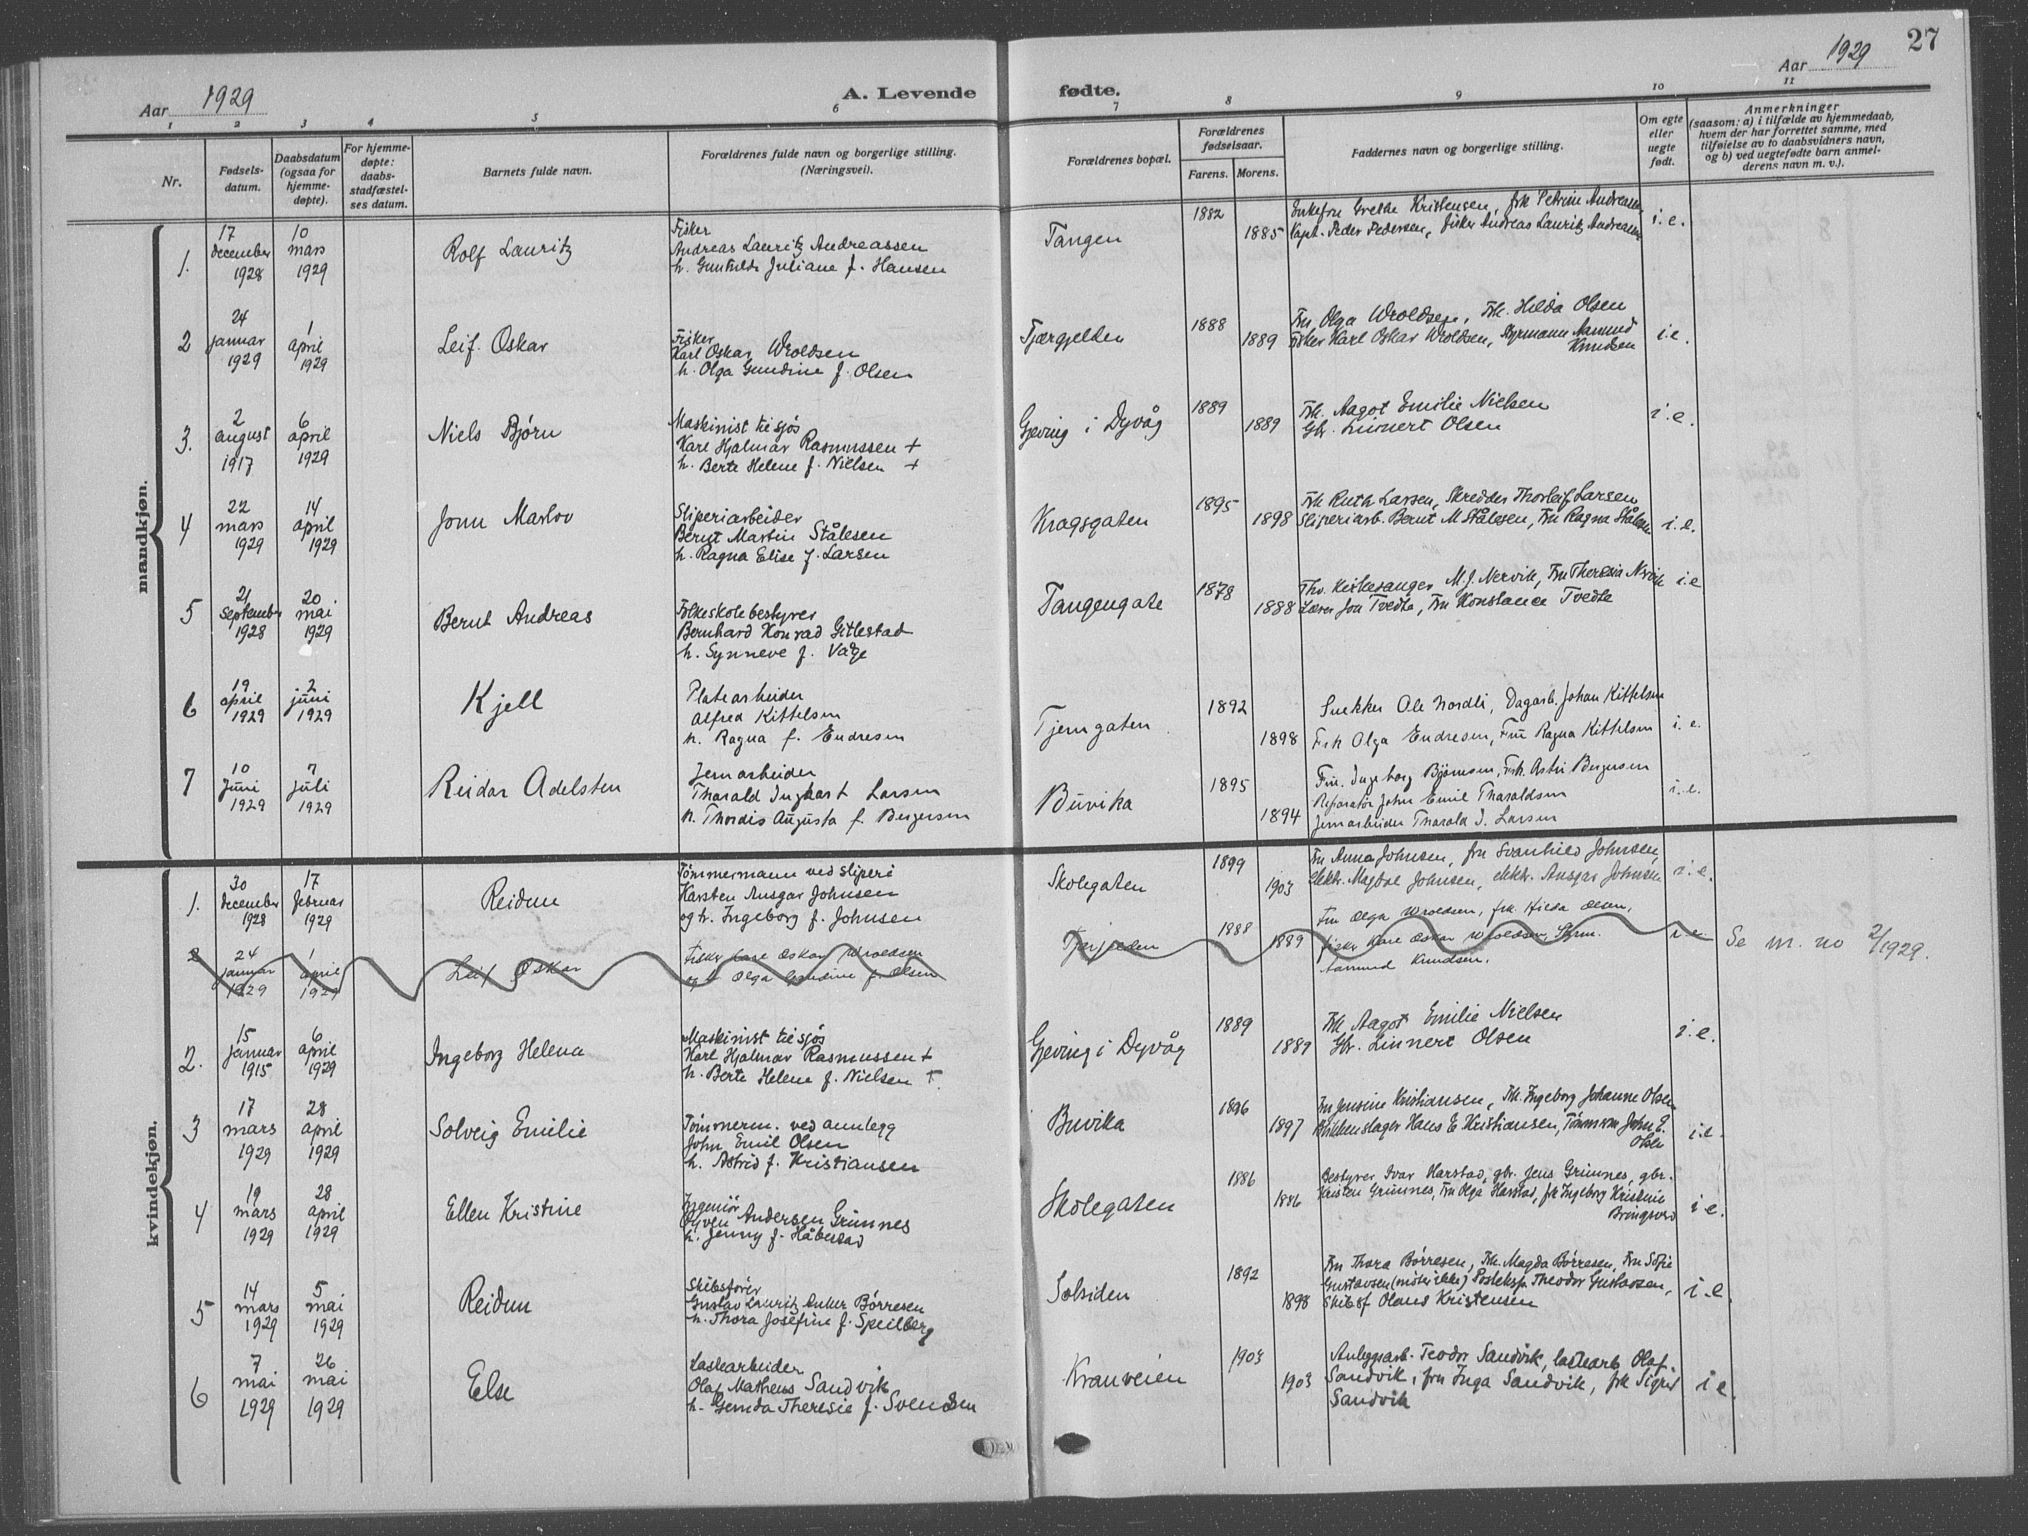 27
Aar 1929
A. Levende fødte.
Aar 1929
1 2 3 4 5 6 7 8 9 10 11
Nr.
Fødsels-
datum.
Daabsdatum
(ogsaa for
hjemme-
døpte).
For hjemme-
døpte:
daabs-
stadfæstel-
ses datum.
Barnets fulde navn.
Forældrenes fulde navn og borgerlige stilling.
(Næringsvei).
Forældrenes bopæl.
Forældrenes
fødselsaar.
Farens. Morens.
Faddernes navn og borgerlige stilling.
Om egte
eller
uegte
født.
Anmerkninger
(saasom: a) i tilfælde av hjemmedaab,
hvem der har forrettet samme, med
tilføielse av to daabsvidners navn,
og b) ved uegtefødte barn anmel-
derens navn m. v.).
mandkjøn.
1.
17
december
1928
10
mars
1929
Rolf Lauritz
Fisker
Andreas Lauritz Andreassen
h. Gunhilde Juliane f. Hansen
Tangen
1882
1885
Enkefru Grethe Kristensen, frk Petrine Andreasen
Kapt. Peder Pedersen, fisker Andreas Lauritz Andreasen
i.e.
2
24
januar
1929
1
april
1929
Leif Oskar
Fisker
Karl Oskar Wroldsen
h. Olga Gundine f. Olsen
Tjærgjelden
1888
1889
Fru Olga Wroldsen, Frk. Hilda Olsen
Fisker Karl Oskar Wroldsen, Styrmann Aamund
Knudsen
i.e.
3.
2
august
1917
6
april
1929
Niels Bjørn
Maskinist tilsjøs
Karl Hjalmar Rasmussen +
h. Berte Helene f. Nielsen +
Gjeving i Dyvåg
1889
1889
Frk. Aagot Emilie Nielsen
Gbr. Linnert Olsen
i.e.
4
22
mars
1929
14
april
1929
John Marlov
Sliperiarbeider
Bernt Martin Stålesen
h. Ragna Elise f. Larsen
Kragsgaten
1895
1898
Frk Ruth Larsen, Skredder Thorleif Larsen
Sliperiarb. Bernt M Stålesen, Fru Ragna Stålesen
i.e.
5
21
September
1928
20
mai
1929
Bernt Andreas
Folkeskolebestyrer
Bernhard Konrad Gitlestad
h. Synneve f. Våge
Tangengate
1878
1888
Thv. Kirkesanger M.J. Nervik, Fru Theresia Nervik
Lærer Jon Tvedte, Fru Konstance Tvedte
i.e
6
19
april
1929
2
juni
1929
Kjell
Platearbeider
Alfred Kittelsen
h. Ragna f. Endresen
Tjerngaten
1892
1898
Snekker Ole Nordli, Dagarb. Johan Kittelsen
Frk Olga Endresen, Fru Ragna Kittelsen
i.e.
7
10
Juni
1929
7
Juli
1929
Reidar Adelsten
Jernarbeider
Tharald Ingvart Larsen
h. Thordis Augusta f. Bergersen
Buvika
1895
1894
Fru. Ingeborg Bjørnsen, Frk. Astri Bergersen
Reparatør John Emil Tharaldsen
Jernarbeider Tharald I. Larsen
i.e.
kvindekjøn.
1.
30
december
1928
17
februar
1929
Reidun
Tømmermann ved sliperi
Karsten Ansgar Johnsen
og h. Ingeborg f. Johnsen
Skolegaten
1899
1903
Fru Anna Johnsen, fru Svanhild Johnsen,
elektr. Magdal Johnsen, elektr. Ansgar Johnsen
i.e.
2
24
januar
1929
1
april
1929
Leif Oskar
Fisker Karl Oskar Wroldsen
og h Olga Gundine f. Olsen
1888
1889
Fru Olga Wroldsen, frk. Hilda Olsen,
fisker Karl Oskar Wroldsen, Styrm.
Aamund Knudsen.
i.e.
Se m. no 2/1929.
2.
15
januar
1915
6
april
1929
Ingeborg Helena
Maskinist tilsjøs
Karl Hjalmar Rasmussen +
h. Berte Helene f. Nielsen +
Gjeving i Dyvåg
1889
1889
Frk. Aagot Emilie Nielsen
Gbr. Linnert Olsen
i.e.
3
17
mars
1929
28
april
1929
Solveig Emilie
Tømmerm. ved annlegg
John Emil Olsen
h. Astrid f. Kristiansen
Buvika
1896
1897
Fru Jensine Kristiansen, Frk. Ingeborg Johanne Olsen
Blikkenslager Hans E Kristiansen, Tømmerm John E.
Olsen
i.e.
4
19
mars
1929
28
april
1929
Ellen Kristine
Ingeniør
Øyven Andersen Grimnes
h. Jenny f. Håbestad
Skolegaten
1886
1886
Bestyrer Ivar Harstad, gbr. Jens Grimnes, gbr.
Kristen Grimnes, Fru Olga Harstad, frk Ingeborg Kristine
Bringsverd
i e.
5
14
mars
1929
5
mai
1929
Reidun
Skibsfører
Gustav Lauritz Anker Børresen
h. Thora Josefine f. Speilberg
Solsiden
1892
1898
Fru Thora Børresen, Frk. Magda Børresen, Fru Sofie
Gustavsen (møter ikke) Posteksp. Theodor Gustavsen,
Skibsf Olaus Kristensen
i.e.
6
7
mai
1929
26
mai
1929
Else
Lastearbeider
Olaf Matheus Sandvik
h. Gemda Theresie f. Svendsen
Kranveien
1903
1903
Anleggsarb. Teodor Sandvik, lastearb. Olaf
Sandvik, fru Inga Sandvik, frk Sigrid
Sandvik
i e.